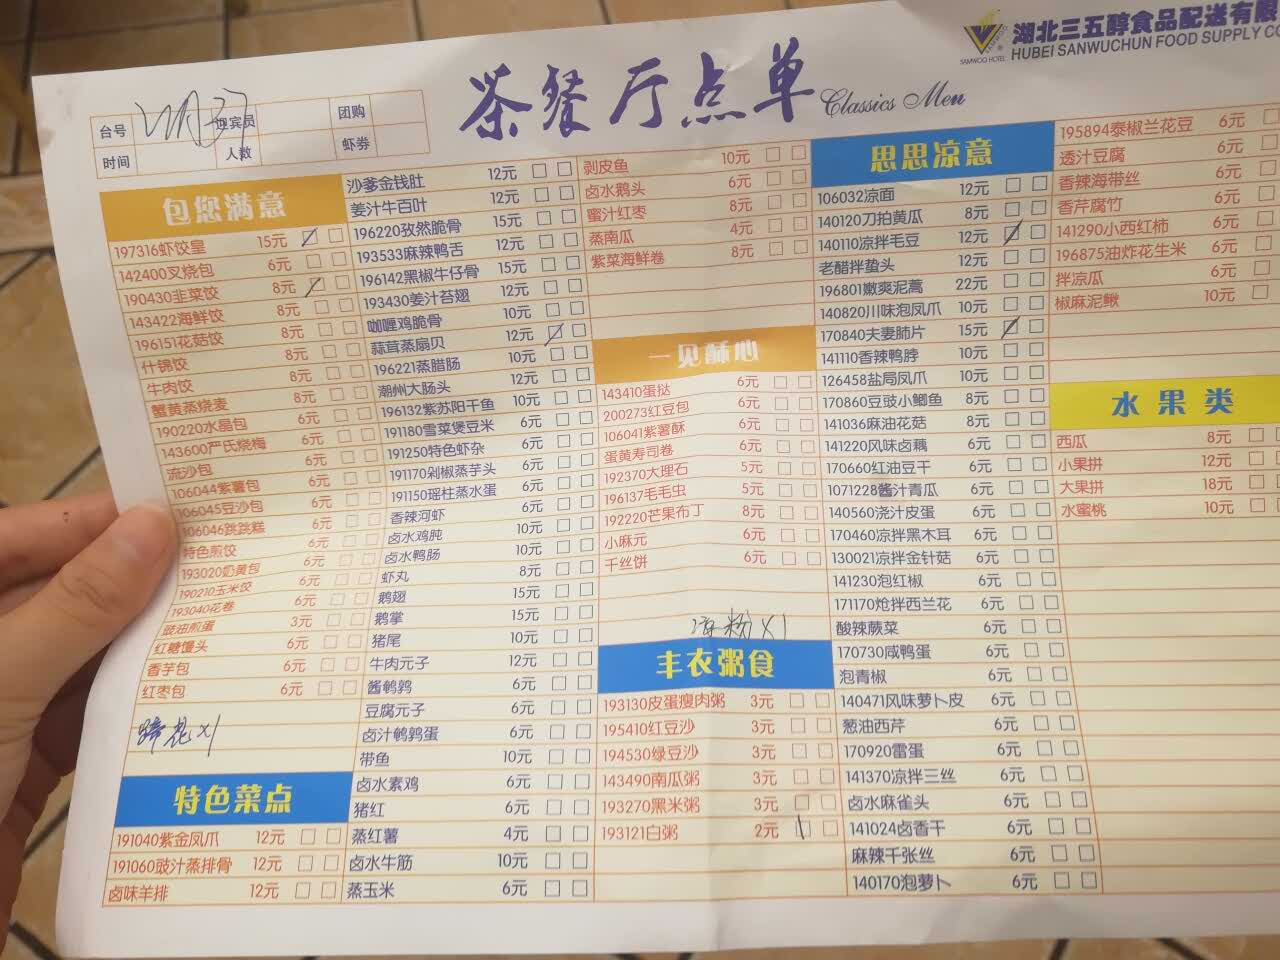 湖北三五醇食品配送有限
HUBEI SANWUCHUN FOOD SUPPLY CO
SAMWOO HOTEL
茶餐厅点单
Classics Men
台号 迎宾员 团购
时间 人数 虾券
包您满意
197316虾饺皇 15元
142400叉烧包 6元
190430韭菜饺 8元
143422海鲜饺 8元
196151花菇饺 8元
什锦饺 8元
牛肉饺 8元
蟹黄蒸烧麦 8元
190220水晶包 6元
143600严氏烧梅 6元
流沙包 6元
106044紫薯包 6元
106045豆沙包 6元
106046跳跳糕 6元
特色煎饺 6元
193020奶黄包 6元
190210玉米饺 6元
193040花卷 6元
豉油煎蛋 3元
红糖馒头 6元
香芋包 6元
红枣包 6元
蹄花x1
特色菜点
191040紫金凤爪 12元
191060豉汁蒸排骨 12元
卤味羊排 12元
沙爹金钱肚 12元
姜汁牛百叶 12元
196220孜然脆骨 15元
193533麻辣鸭舌 12元
196142黑椒牛仔骨 15元
193430姜汁苔翅 12元
咖喱鸡脆骨 10元
蒜茸蒸扇贝 12元
196221蒸腊肠 10元
潮州大肠头 12元
196132紫苏阳干鱼 10元
191180雪菜煲豆米 6元
191250特色虾杂 6元
191170剁椒蒸芋头 6元
191150瑶柱蒸水蛋 6元
香辣河虾 6元
卤水鸡肫 10元
卤水鸭肠 10元
虾丸 8元
鹅翅 15元
鹅掌 15元
猪尾 10元
牛肉元子 12元
酱鹌鹑 6元
豆腐元子 6元
卤汁鹌鹑蛋 6元
带鱼 10元
卤水素鸡 6元
猪红 6元
蒸红薯 4元
卤水牛筋 10元
蒸玉米 6元
剥皮鱼 10元
卤水鹅头 6元
蜜汁红枣 8元
蒸南瓜 4元
紫菜海鲜卷 8元
一见酥心
143410蛋挞 6元
200273红豆包 6元
106041紫薯酥 6元
蛋黄寿司卷 6元
192370大理石 5元
196137毛毛虫 5元
192220芒果布丁 8元
小麻元 6元
千丝饼 6元
凉粉x1
丰衣粥食
193130皮蛋瘦肉粥 3元
195410红豆沙 3元
194530绿豆沙 3元
143490南瓜粥 3元
193270黑米粥 3元
193121白粥 2元
思思凉意
106032凉面 12元
140120刀拍黄瓜 8元
140110凉拌毛豆 12元
老醋拌蛰头 12元
196801嫩爽泥蒿 22元
140820川味泡凤爪 10元
170840夫妻肺片 15元
141110香辣鸭脖 10元
126458盐局凤爪 10元
170860豆豉小鲫鱼 8元
141036麻油花菇 8元
141220风味卤藕 6元
170660红油豆干 6元
1071228酱汁青瓜 6元
140560浇汁皮蛋 6元
170460凉拌黑木耳 6元
130021凉拌金针菇 6元
141230泡红椒 6元
171170炝拌西兰花 6元
酸辣蕨菜 6元
170730咸鸭蛋 6元
泡青椒 6元
140471风味萝卜皮 6元
葱油西芹 6元
170920雷蛋 6元
141370凉拌三丝 6元
卤水麻雀头 6元
141024卤香干 6元
麻辣千张丝 6元
140170泡萝卜 6元
195894泰椒兰花豆 6元
透汁豆腐 6元
香辣海带丝 6元
香芹腐竹 6元
141290小西红柿 6元
196875油炸花生米 6元
拌凉瓜 6元
椒麻泥鳅 10元
水果类
西瓜 8元
小果拼 12元
大果拼 18元
水蜜桃 10元